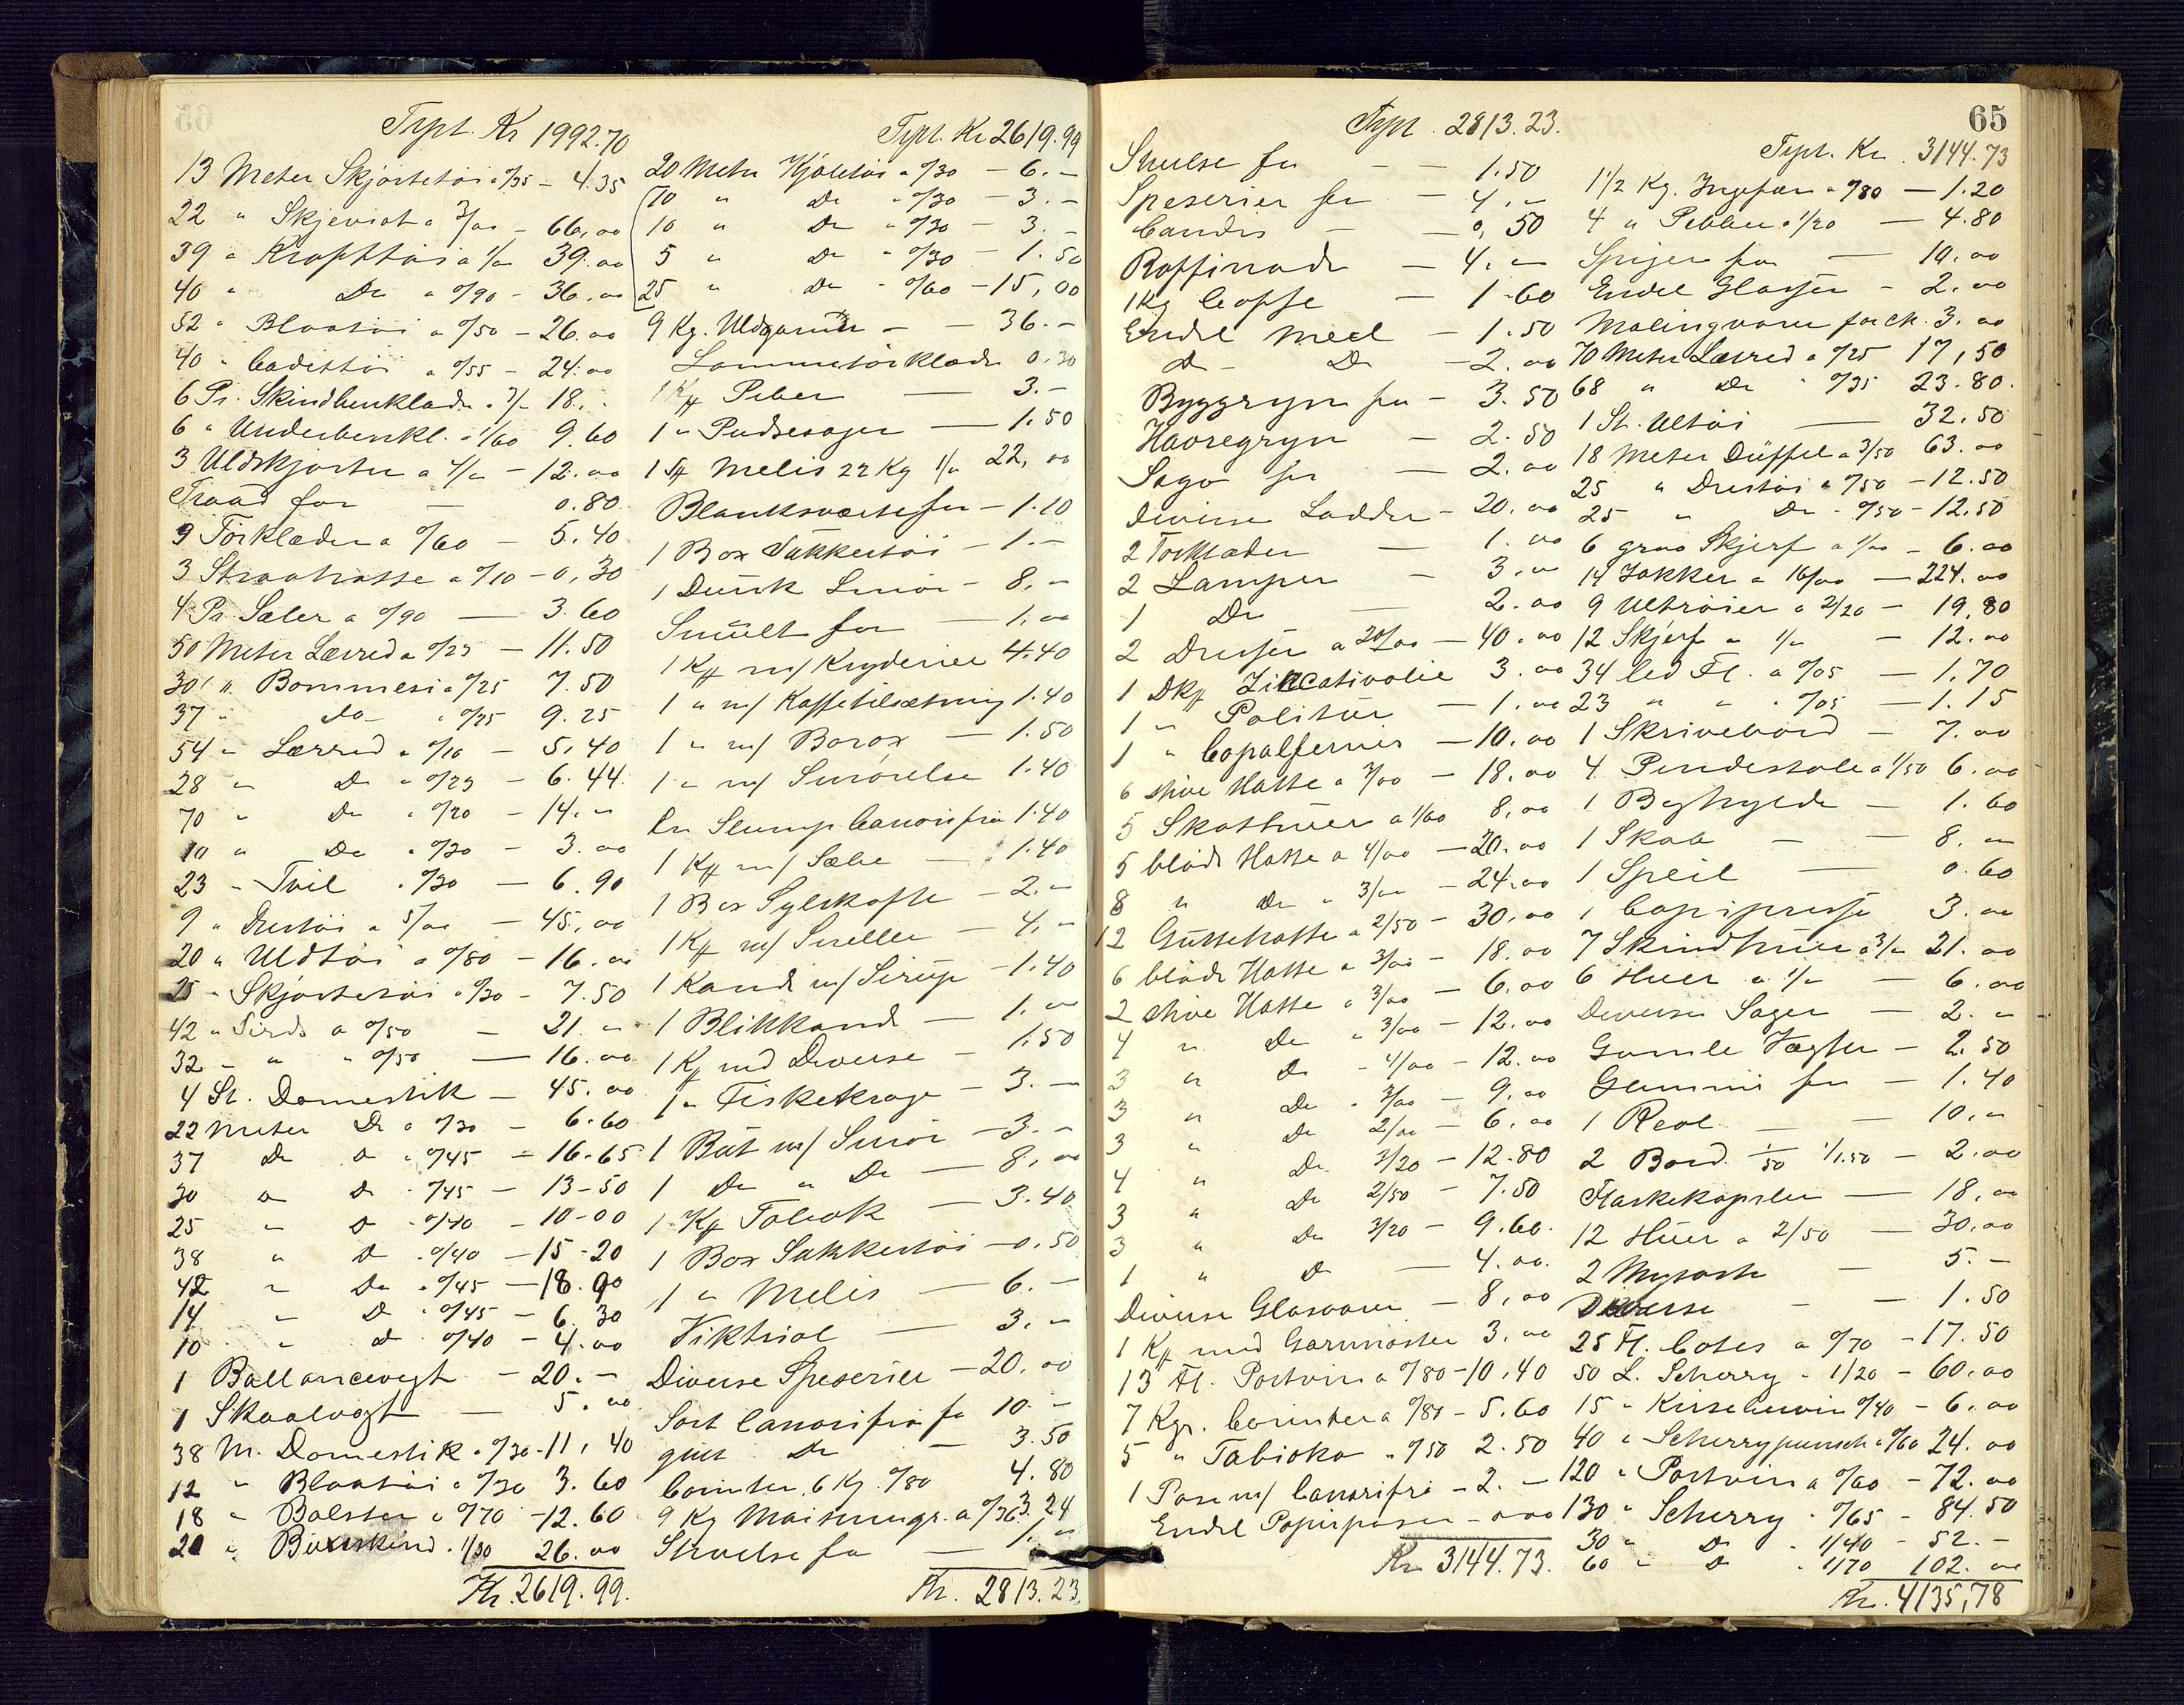 Trpt. Kr 1992.70
13 Meter Skjortetöi a 0/35 - 4.35
22 " Skjeviot a 3/00 - 66,00
39 " Kropttöi a 1/00 39.00
40 " Do a 0/90 - 36.00
52 " Blaatöi a 0/50 - 26.00
40 " Cadettöi a 0/55 - 24.00
6 Pr. Skindbenklæder a 3/- 18.-
6 " Underbenkl. a 1/60 9.60
3 Uldskjorter a 4/- - 12.00
Traad for - 0.80
9 Törklæder a 0/60 - 5.40
3 Straahatte a 0/10 - 0,30
4 Pr. Sæler a 0/90 - 3.60
50 Meter Lærred a 0/23 - 11.50
30 " Bommesi a 0/25 7.50
37 " Do " 0/25 9.25
54 " Lærred a 0/10 - 5.40
28 " Do a 0/23 - 6.44
70 " Do " 0/20 - 14.-
10 " Do " 0/30 - 3.00
23 " Tvil " 0/30 - 6.90
9 " Drestöi a 5/00 - 45,00
20 " Uldtöi a 0/80 - 16.00
25 " Skjortetöi a 0/30 - 7.50
42 " Sirds a 0/50 - 21.-
32 " " " 0/50 - 16.00
4 St. Domestik - 45.00
22 Meter Do a 0/30 - 6.60
37 Do Do " 0/45 - 16.65
30 " Do " 0/45 - 13-50
25 " Do " 0/40 - 10-00
38 " Do " 0/40 - 15-20
42 " Do " 0/45 - 18.90
14 " Do " 0/45 - 6.30
10 " Do " 0/40 - 4.00
1 Ballancevegt - 20.-
1 Skaalvægt - 5.00
38 M. Domestik a 0/30 - 11,40
12 " Blaatöi a 0/30 3.60
18 " Bolster a 0/70 - 12.60
20 " Buxeskind " 1/30 26.00
Kr. 2619.99.
Trpt. Kr 2619.99
20 Meter Kjoletöi a 0/30 - 6.-
10 " Do " 0/30 - 3.-
10 " Do " 0/30 - 3.-
5 " Do " 0/30 - 1.50
25 " Do " 0/60 - 15,00
9 Kg. Uldgarn - - 36.-
Lommetörklæde 0.30
1 Kff Peber - 3.-
1 " Pudsesager - 1.50
1 Melis 22 Kg 1/00 22,00
Blanksværte for - 1.10
1 Box Sukkertöi - 1.-
1 Dunk Smör - 8.-
Smült for 1,00
1 Kff m/ Kryderier 4.40
1 " m/ Kaffetilsætning 1.40
1 " m/ Borax - 1.50
1 " m/ Smörelse 1.40
En Slump Canorifrö 1.40
1 Kff m/ Sæbe - 1.40
1 Box Syltekaffe - 2.-
1 Kff m/ Sneller - 4.-
1 Kande m/ Sirup - 1.40
1 Blikkande - 1.-
1 Kff med Diverse - 1.50
1 " Fiskekroge - 3.-
1 But m/ Smör - 3.-
1 Do " Do - 8,00
1 Kff Tobak - 3.40
1 Box Sukkertöi - 0.50
1 " Melis - 6.-
Viktriol - 3.-
Diverse Speserier - 20.00
Sort Canorifrö for 10.-
gult Do - 3.50
Corinter 6 Kg. 0/80 4.80
9 Kg Maisunngr. a 0/36 3.24
Stivelse for - 1.-
Kr. 2813.23
65
Trpt. 2813.23.
Snulse for - - 1.50
Speserier for - 4.-
Candis - - 0,50
Raffinade - 4.-
1 Kg Caffe - 1-60
Endel Meel - 1.50
Do Do - 2.00
Byggryn for - 3.50
Havregryn - 2.50
Sago for - 2.00
Diverse Ladder - 20.00
2 Torklæder - 1.00
2 Lamper - 3.00
1 Do - 2.00
2 Dresser a 20/00 - 40.00
1 Dkff Ziccativolie 3.00
1 " Politur - 1.00
1 " Copalfernis - 10.00
6 stive Hatte a 3/00 - 18.00
5 Skathuer a 1/60 8.00
5 blöde Hatte a 4/00 - 20.00
8 " Do " 3/00 - 24.00
12 Guttehatte a 2/50 - 30.00
6 blöde Hatte a 3/00 - 18.00
2 stive Hatte a 3/00 - 6.00
4 " Do " 3/00 - 12.00
3 " Do " 4/00 - 12.00
3 " Do " 3/00 - 9.00
3 " Do 2/00 - 6.00
4 " Do 3/20 - 12.80
3 " Do 2/50 - 7.50
3 " Do 3/20 - 9.60.
1 " Do - 4.00.
Diverse Glasvarer - 8,00
1 Kff med Garnnöster 3.00
13 Fl. Portvin a 0/80 - 10,40
7 Kgr. Corinter a 0/80 - 5.60
5 " Tabioka " 0/50 2.50
1 Pose m/ Canarifrö - 2.-
Endel Papirposer -
Kr 3144.73.
Trpt. Kr. 3144.73
1 1/2 Kg. Ingefær a 0/80 - 1.20
4 " Pebber a 1/20 - 4.80
Spiger for - 10.00
Endel Glasser - 2.00
Malingvarer for ck. 3.00
70 Meter Lærred a 0/25 17,50
68 " Do " 0/35 23.80.
1 St. Ultöi - 32.50
18 Meter Düffel a 3/50 63.00
25 " Drestöi a 0/50 - 12.50
25 " Do " 0/50 - 12.50
6 graa Skjerf a 1/00 - 6.00
14 Jakker a 16/00 - 224.00
9 Ultröier a 2/20 - 19.80
12 Skjerf a 1/- - 12.00
34 led Fl. a 0/05 - 1.70
23 " " " 0/05 - 1.15
1 Skrivebord - 7.00
4 Pindestole a 1/50 6.00
1 Boghylde - 1.60
1 Skab - - 8.00
1 Speil - 0.60
1 Copipresse 3.00
7 Skindhuer a 3/00 21.00
6 Huer a 1/- - 6.00
Diverse Sager - 2.-
Gamle Vægter - 2.50
Gummi for - 1.40
1 Reol - - 10.-
2 Bord 1/50 1/1.50 - 2.00
Flaskekapsler - 18,00
12 Huer a 2/50 - 30.00
2 Mysost - 5.-
Diverse - - 1.50
25 Fl. Cotes a 0/70 - 17.50
50 L. Scherry " 1/20 - 60.00
15 " Kirsebærvin 0/40 - 6.00
40 " Scherrypunsch a 0/60 24.00
120 " Portvin a 0/60 - 72.00
130 " Scherry " 0/65 - 84.50
30 " Do " 1/40 - 52.-
60 " Do " 1/70 102.00
Kr. 4135,78